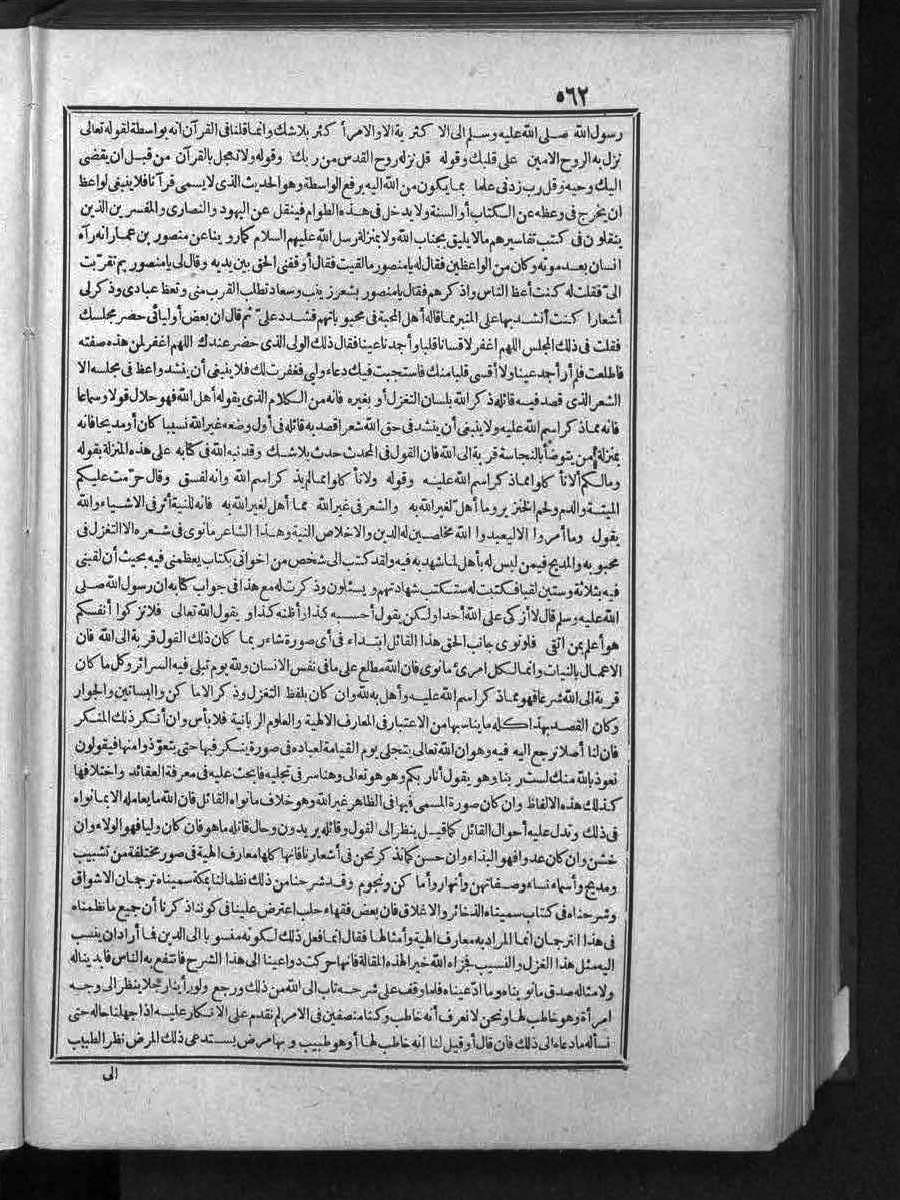 ٥٦٢
رسول الله صلى الله عليه وسلم الى الا كثرية الاوالامر أكثر بلاشك وانما قلنا فى القرآن انه بواسطة لقوله تعالى
نزل به الروح الامين على قلبك وقوله قل نزله روح القدس من ربك وقوله ولا تعجل بالقرآن من قبل ان يقضى
اليك وحيه وقل رب زدنى علما بما يكون من الله اليه برفع الواسطة وهو الحديث الذى لا يسمى قرآنا فلا ينبغى لواعظ
ان يخرج فى وعظه عن الكتاب أو السنة ولا يدخل فى هذه الطوام فينقل عن اليهود والنصارى والمفسرين الذين
ينقلون فى كتب تفاسيرهم مالا يليق بجناب الله ولا بمنزلة رسل الله عليهم السلام كما روينا عن منصور بن عمار انه رآه
انسان بعد موته وكان من الواعظين فقال له يا منصور ما لقيت فقال أوقفنى الحق بين يديه وقال لى يا منصور بم تقربت
الىّ فقلت له كنت أعظ الناس واذكرهم فقال يا منصور بشعر زينب وسعاد تطلب القرب منى وتعظ عبادى وذكر لى
أشعارا كنت أنشدبها على المنبر مما قاله أهل المحبة فى محبوباتهم فشدد علىّ ثم قال ان بعض أوليائى حضر مجلسك
فقلت فى ذلك المجلس اللهم اغفر لاقسانا قلبا وأجمدنا عينا فقال ذلك الولى الذى حضر عندك اللهم اغفر لمن هذه صفته
فاطلعت فلم أر أجمد عينا ولا أقسى قلبا منك فاستجبت فيك دعاء وليى فغفرت لك فلا ينبغى أن ينشد واعظ فى مجلسه الا
الشعر الذى قصد فيه قائله ذكر الله بلسان التغزل أو بغيره فانه من الكلام الذى يقوله أهل الله فهو حلال قولا وسماعا
فانه مما ذكر اسم الله عليه ولا ينبغى أن ينشد فى حق الله شعرا قصد به قائله فى أول وضعه غير الله نسيبا كان أو مديحا فانه
بمنزلة من يتوضأ بالنجاسة قربة الى الله فان القول فى المحدث حدث بلاشك وقد نبه الله فى كتابه على هذه المنزلة بقوله
ومالكم ألا تأكلوا مما ذكر اسم الله عليه وقوله ولا تأكلوا مما لم يذكر اسم الله وانه لفسق وقال حرّمت عليكم
الميتة والدم ولحم الخنزير وما أهلّ لغير الله به والشعر فى غير الله مما أهل لغير الله به فانه للنية أثر فى الاشياء والله
يقول وما أمروا الا ليعبدوا الله مخلصين له الدين والاخلاص النية وهذا الشاعر ما نوى فى شعره الا التغزل فى
محبوبه والمديح فيمن ليس له بأهل لما شهد به فيه ولقد كتب الى شخص من اخوانى بكتاب يعظمنى فيه بحيث أن لقبنى
فيه بثلاثة وستين لقبا فكتبت له ستكتب شهادتهم ويسئلون وذكرت له مع هذا فى جواب كتابه ان رسول الله صلى
الله عليه وسلم قال لا أزكى على الله أحدا ولكن يقول أحسبه كذا أو أظنه كذا ويقول الله تعالى فلا تزكوا أنفسكم
هو أعلم بمن اتقى فلو نوى جانب الحق هذا القائل ابتداء فى أى صورة شاء ربما كان ذلك القول قربة الى الله فان
الاعمال بالنيات وانما لكل امرئ ما نوى فان الله مطلع على مافى نفس الانسان ولله يوم تبلى فيه السرائر وكل ما كان
قربة الى الله شرعا فهو مما ذكر اسم الله عليه وأهل به لله وان كان بلفظ التغزل وذكر الاماكن والبساتين والجوار
وكان القصد بهذا كله ما يناسبها من الاعتبار فى المعارف الالهية والعلوم الربانية فلا بأس وان أنكر ذلك المنكر
فان لنا أصلا نرجع اليه فيه وهو ان الله تعالى يتجلى يوم القيامة لعباده فى صورة ينكر فيها حتى يتعوّذوا منها فيقولون
نعوذ بالله منك لست ربنا وهو يقول أنا ربكم وهو هو تعالى وهنا سر فى تجليه فابحث عليه فى معرفة العقائد واختلافها
كذلك هذه الالفاظ وان كان صورة المسمى فيها فى الظاهر غير الله وهو خلاف ما نواه القائل فان الله ما يعامله الا بما نواه
فى ذلك وتدل عليه أحوال القائل كما قيل ينظر الى القول وقائله يريدون وحال قائله ما هو فان كان وليا فهو الولاء وان
خشن وان كان عدوا فهو البذاء وان حسن كما نذكر نحن فى أشعارنا فانها كلها معارف الهية فى صور مختلفة من تشبيب
ومديح وأسماء نساء وصفاتهن وأنهار وأماكن ونجوم وقد شرحنا من ذلك نظما لنا بمكة سميناه ترجمان الاشواق
وشرحناه فى كتاب سميناه الذخائر والاغلاق فان بعض فقهاء حلب اعترض علينا فى كوننا ذكرنا أن جميع ما نظمناه
فى هذا الترجمان انما المراد به معارف الهية وأمثالها فقال انما فعل ذلك لكونه منسوبا الى الدين فما أراد ان ينسب
اليه مثل هذا الغزل والنسيب فجزاه الله خيرا لهذه المقالة فانها حركت دواعينا الى هذا الشرح فانتفع به الناس فابدينا له
ولامثاله صدق ما نويناه وما ادّعيناه فلما وقف على شرحه تاب الى الله من ذلك ورجع ولو رأينا رجلا ينظر الى وجه
امرأة وهو خاطب لها ونحن لا نعرف أنه خاطب وكنا منصفين فى الامر لم نقدم على الانكار عليه اذا جهلنا حاله حتى
نسأله ما دعاه الى ذلك فان قال أو قيل لنا انه خاطب لها أو هو طبيب وبها مرض يستدعى ذلك المرض نظر الطبيب
الى